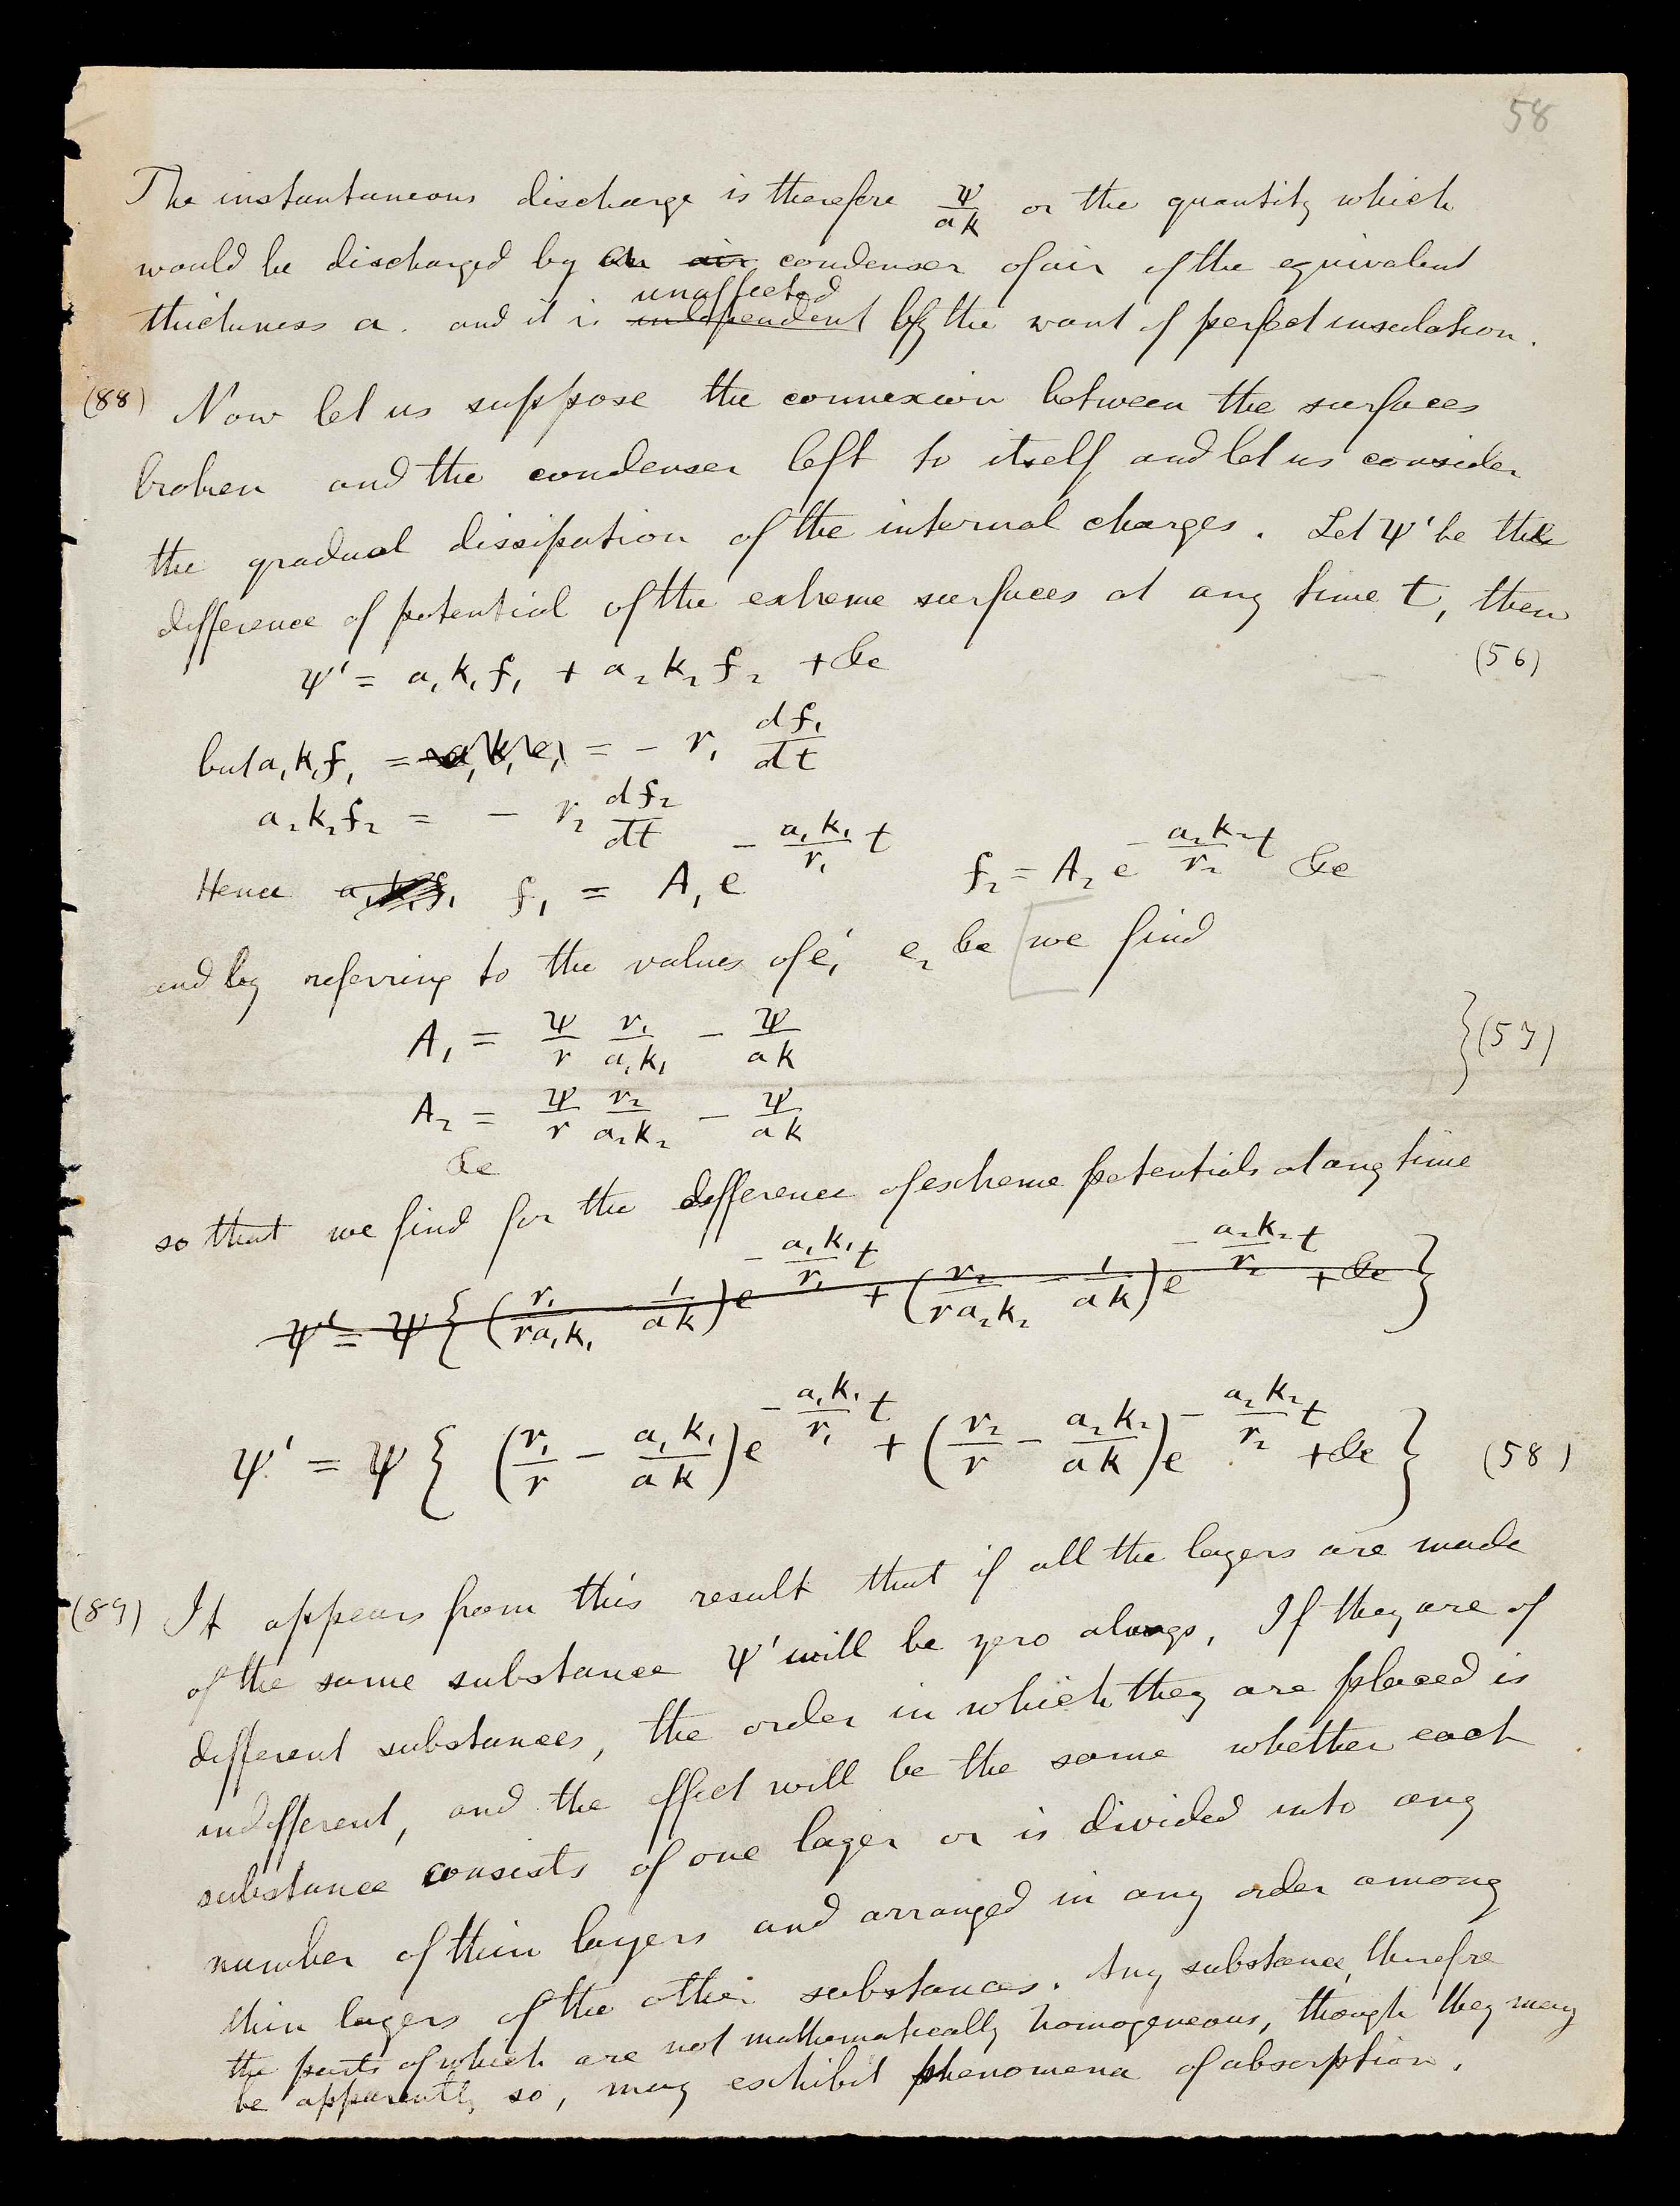 58
The instantaneous discharge is therefore ψ/ak or the quantity which
would be discharged by a̶n̶ a̶i̶r̶ condenser of air of the equivalent
unaffected
thickness a. and it is i̶n̶d̶e̶p̶e̶n̶d̶e̶n̶t̶ by the want of perfect insulation.
(88) Now let us suppose the connexion between the surfaces
broken and the condenser left to itself and let us consider
the gradual dissipation of the internal charges. Let ψ' be the
difference of potential of the extreme surfaces at any time t, then
ψ' = a₁k₁f₁ + a₂k₂f₂ + &c (56)
but a₁k₁f₁ = a̶₁̶k̶₁̶e̶₁̶ = − r₁ df₁/dt
a₂k₂f₂ = − r₂ df₂/dt
Hence a̶₁̶k̶₁̶f̶₁̶ f₁ = A₁ e^(−(a₁k₁/r₁)t) f₂ = A₂ e^(−(a₂k₂/r₂)t) &c
and by referring to the values of e₁' e₂ &c [we find
A₁ = ψ/r r₁/a₁k₁ − ψ/ak
} (57)
A₂ = ψ/r r₂/a₂k₂ − ψ/ak
&c
so that we find for the difference of extreme potentials at any time
ψ' = ψ { (r₁/ra₁k₁ − 1/ak) e^(−(a₁k₁/r₁)t) + (r₂/ra₂k₂ − 1/ak) e^(−(a₂k₂/r₂)t) + &c }
ψ' = ψ { (r₁/r − a₁k₁/ak) e^(−(a₁k₁/r₁)t) + (r₂/r − a₂k₂/ak) e^(−(a₂k₂/r₂)t) + &c } (58)
(89) It appears from this result that if all the layers are made
of the same substance ψ' will be zero always. If they are of
different substances, the order in which they are placed is
indifferent, and the effect will be the same whether each
substance consists of one layer or is divided into any
number of thin layers and arranged in any order among
thin layers of the other substances. Any substance, therefore
the parts of which are not mathematically homogeneous, though they may
be apparently so, may exhibit phenomena of absorption.